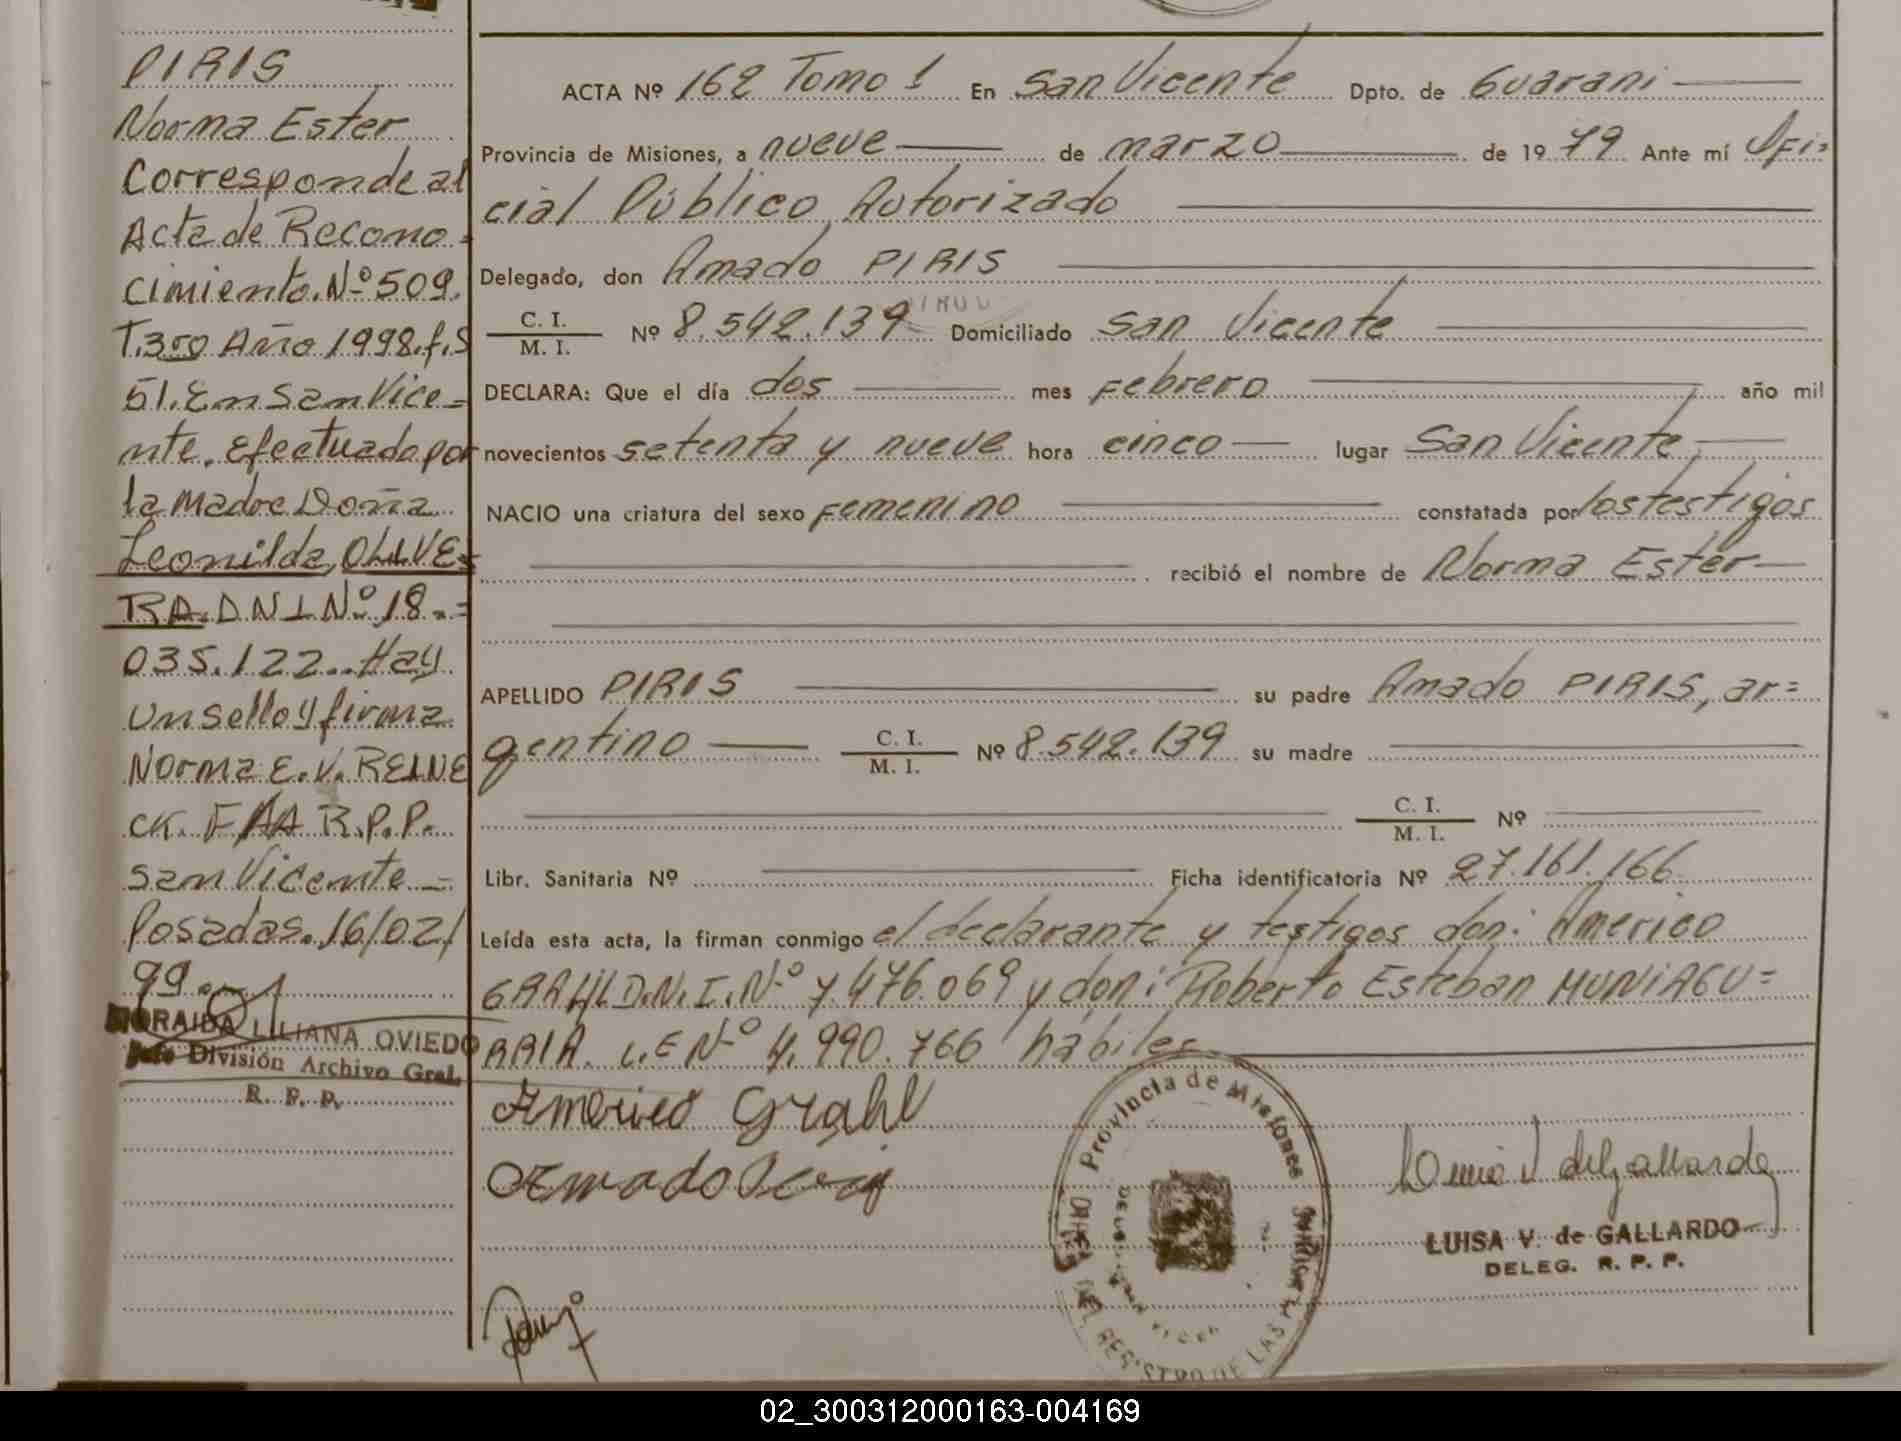 PIRIS
Norma Ester
Corresponde al
Acta de Recono=
cimiento. Nº 509.
T.3ro Año 1998. f.S
51. En San Vice=
nte. Efectuado por
la Madre Doña
Leonilda, OLIVE=
RA. D N I Nº 18.=
035.122.. Hay
un sello y firma
Norma E. V. REINE
CK. R.P.P.
San Vicente =
Posadas. 16/02/
99.
LILIANA OVIEDO
Jefe División Archivo Gral.
R. P. P.
ACTA Nº 162 Tomo 1 En San Vicente Dpto. de Guarani
Provincia de Misiones, a nueve de marzo de 1979 Ante mí Ofi=
cial Público Autorizado
Delegado, don Amado PIRIS
C. I.
M. I. Nº 8.542.139 Domiciliado San Vicente
DECLARA: Que el día dos mes Febrero año mil
novecientos setenta y nueve hora cinco lugar San Vicente
NACIO una criatura del sexo Femenino constatada por los testigos
recibió el nombre de Norma Ester
APELLIDO PIRIS su padre Amado PIRIS, ar=
gentino C. I.
M. I. Nº 8.542.139 su madre
C. I.
M. I. Nº
Libr. Sanitaria Nº Ficha identificatoria Nº 27.161.166
Leída esta acta, la firman conmigo el declarante y testigos don: Americo
GRAHL D.N.I. Nº 7.476.069 y don: Roberto Esteban MUNIAGU=
RRIA. L.E Nº 4.990.766 hábiles
Americo Grahl
Amado
Provincia de Misiones
REGISTRO DE LAS
LUISA V. de GALLARDO
DELEG. R. P. P.
02_300312000163-004169